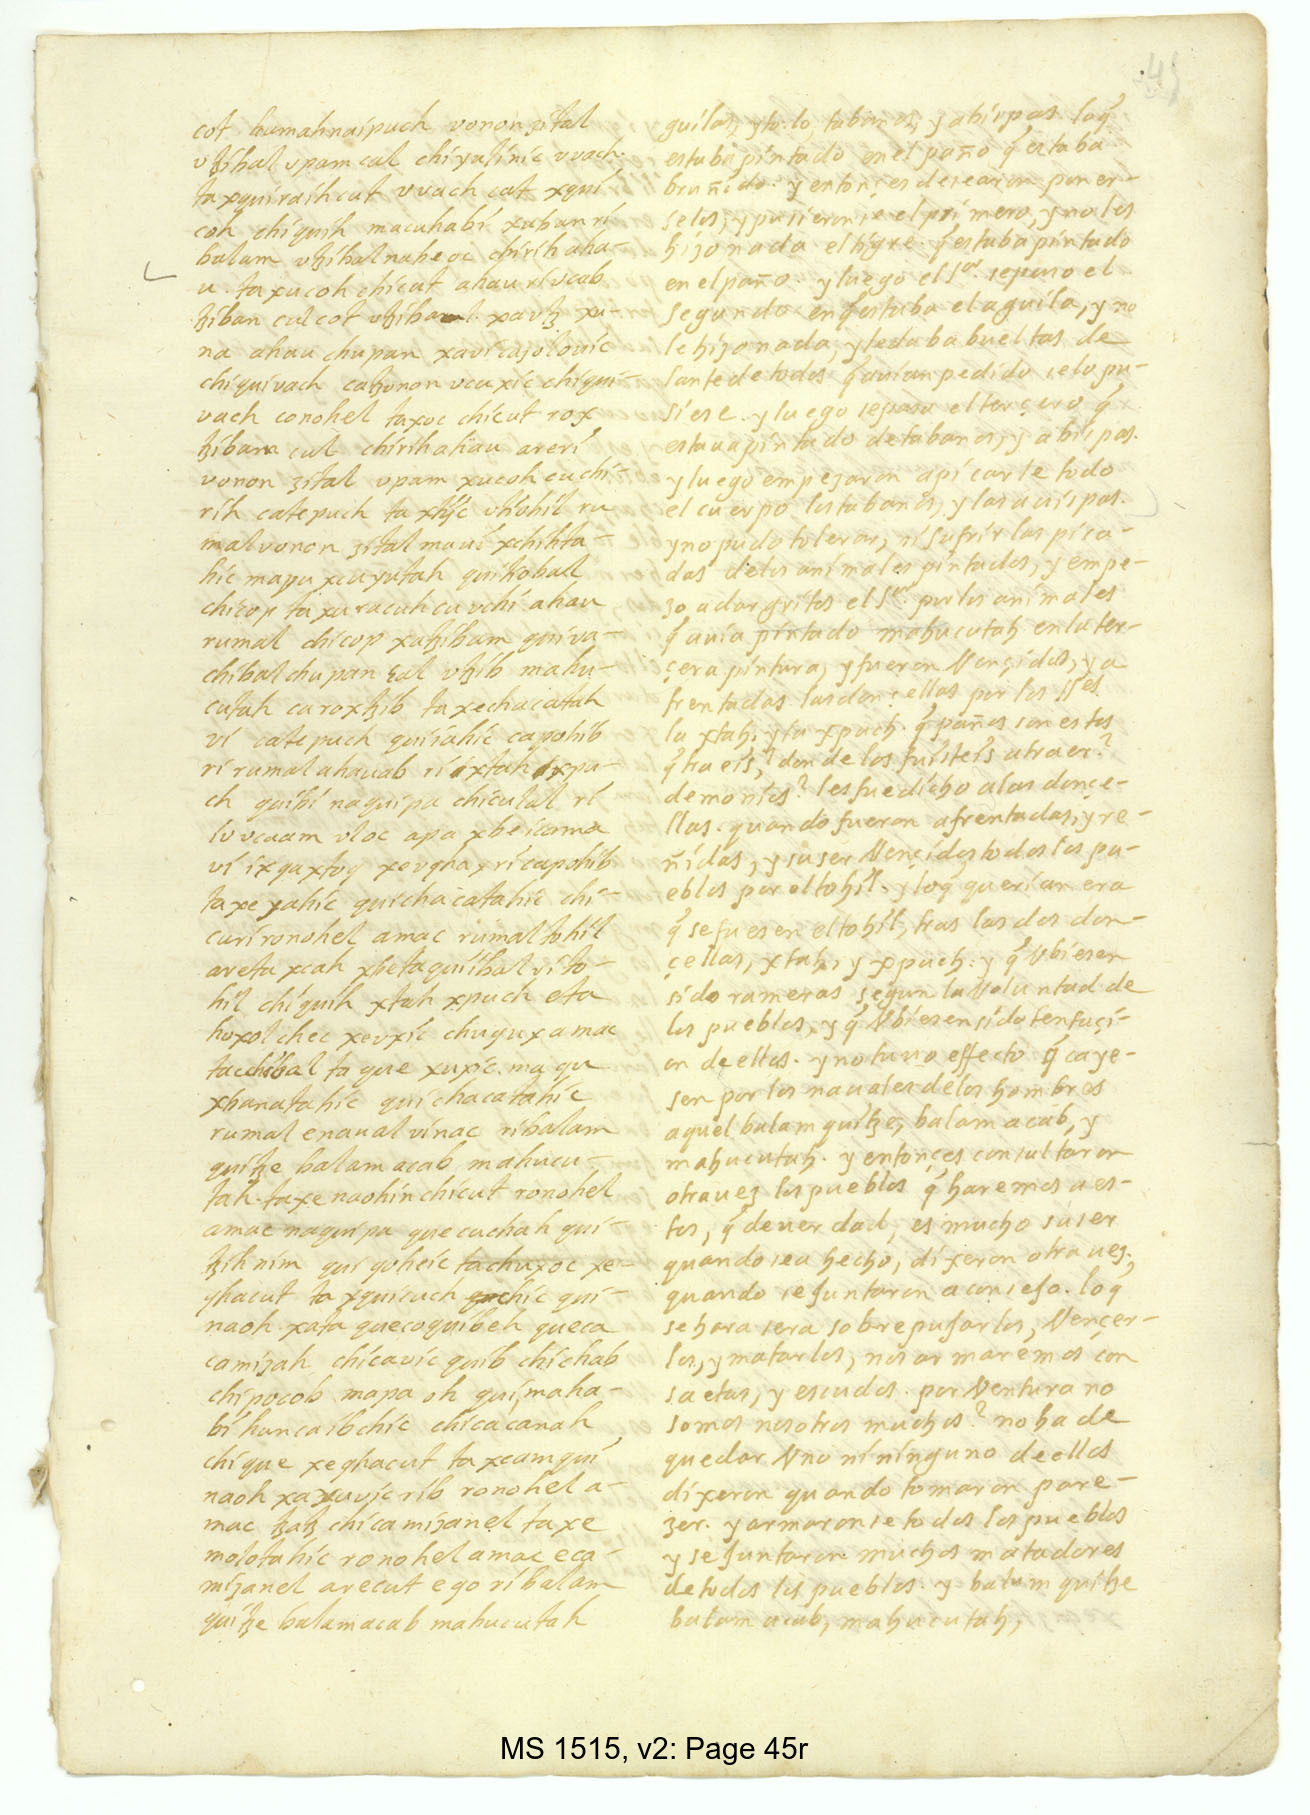 45
cot humahnaipuch vonon zital
vꜩibal vpam cal chiyulinic vvach.
ta xquiraih cut vvach cat xqui,
coh chiquih macuhabi xuban ri
balam vꜩibal nabe oc chirih aha-
u. ta xucoh chicut ahau ri vcab
ꜩiban cul cot vꜩibal xavꜩ xu-
na ahau chupan xavicajolovic
chiquivach cahonon vcuxic chiqui-
vach conohel taxoc chicut rox
ꜩiban cul chirih ahau areri
vonon zital vpam xucoh cu chi-
rih catepuch ta xtijc vtiohil ru
mal vonon zital maui xchihta-
hic mapu xcuyutah quitiobal
chicop ta xuracuh cu vchi ahau
rumal chicop xaꜩibam quiva-
chibal chupan cal vꜩib mahu-
cutah cu roxꜩib ta xechacatah
vi catepuch quiiahic capohib
ri rumal ahauab ri ixtah ixpu-
ch quibi naquipa chiculal ri
lo vcaam vloc apa xbe icama
vi ix qaxtoq xevqhax ri capohib
ta xe yahic quichacatahic chi-
curi ronohel amac rumal tohil
areta xcah xbeta quiibal ri to-
hil chiquih xtah xpuch eta
hoxol chec xevxic chuqux amac
tacchibal ta que xuxic. ma qu
xbanatahic quichacatahic
rumal enaual vinac ribalam
quitꜩe balam acab mahucu-
tah. ta xe naohin chicut ronohel
amac naquipa que cuchah qui-
ꜩih nim qui qoheic tachuxoc xe-
qhacut ta xquicuch chic qui-
naoh xata quecoquibeh queca
camizah chicavic quib chi chab
chi pocob mapa oh qui, maha-
bi huncaibchic chicacanah
chique xeqhacut ta xcamqui
naoh xaxuvic rib ronohel a-
mac ꜩaꜩ chi camizanel ta xe
molotahic ronohel amac eca-
mizanel arecut e qo ri balam
quitꜩe balam acab mahucutah
guilas, y to. lo tabanos, y abispas. loq̃
estaba pintado en el paño q̃ estaba
bruñido. y entonçes desearon poner-
selos, y pusieronse el primero, y no les
hizo nada el tigre. q̃ estaba pintado
en el paño. y luego el Sor. se puso el
segundo en q̃ estaba el aguila, y no
le hizo nada, y le daba bueltas de
lante de todos q̃ auian pedido se lo pu-
siese. y luego se puso el terçero q̃
estaua pintado de tabanos, y abispas.
y luego empezaron a picarle todo
el cuerpo los tabanos, y las auispas.
y no pudo tolerar, ni sufrir las pica-
das de los animales pintados, y empe-
zo a dar gritos el Sor. por los animales
q̃ auia pintado mahucutah en la ter-
çera pintura, y fueron Vençidos, y a
frentadas las donçellas por los SSes
la xtah, y la xpuch. q̃ paños son estos
q̃ traeis,? donde los fuisteis a traer?
demonios? les fue dicho a las donçe-
llas. quando fueron afrentadas, y re-
ñidas, y su ser Vençidos todos los pu-
eblos por el tohil. y loq̃ querian era
q̃ se fuesen el tohil, tras las dos don-
çellas, xtah, y xpuch. y q̃ Vbiesen
sido rameras segun la Voluntad de
los pueblos, y q̃ Vbiesen sido tentaçi-
on de ellos. y no tuuo effecto q̃ caye-
sen por los nauales de los hombres
aquel balam quitꜩe, balam acab, y
mahucutah. y entonçes consultaron
otra uez los pueblos q̃ haremos a es-
tos, q̃ de uerdad, es mucho su ser
quando sea hecho, dixeron otra uez,
quando se juntaron a consejo. loq̃
se hara sera sobrepujarlos, Vençer-
los, y matarlos, nos armaremos con
saetas, y escudos. por Ventura no
somos nosotros muchos? no ha de
quedar Vno ni ninguno de ellos
dixeron quando tomaron pare-
zer. y armaronse todos los pueblos
y se juntaron muchos matadores
de todos los pueblos. y balam quitꜩe
balam acab, mahucutah,
MS 1515, v2: Page 45r